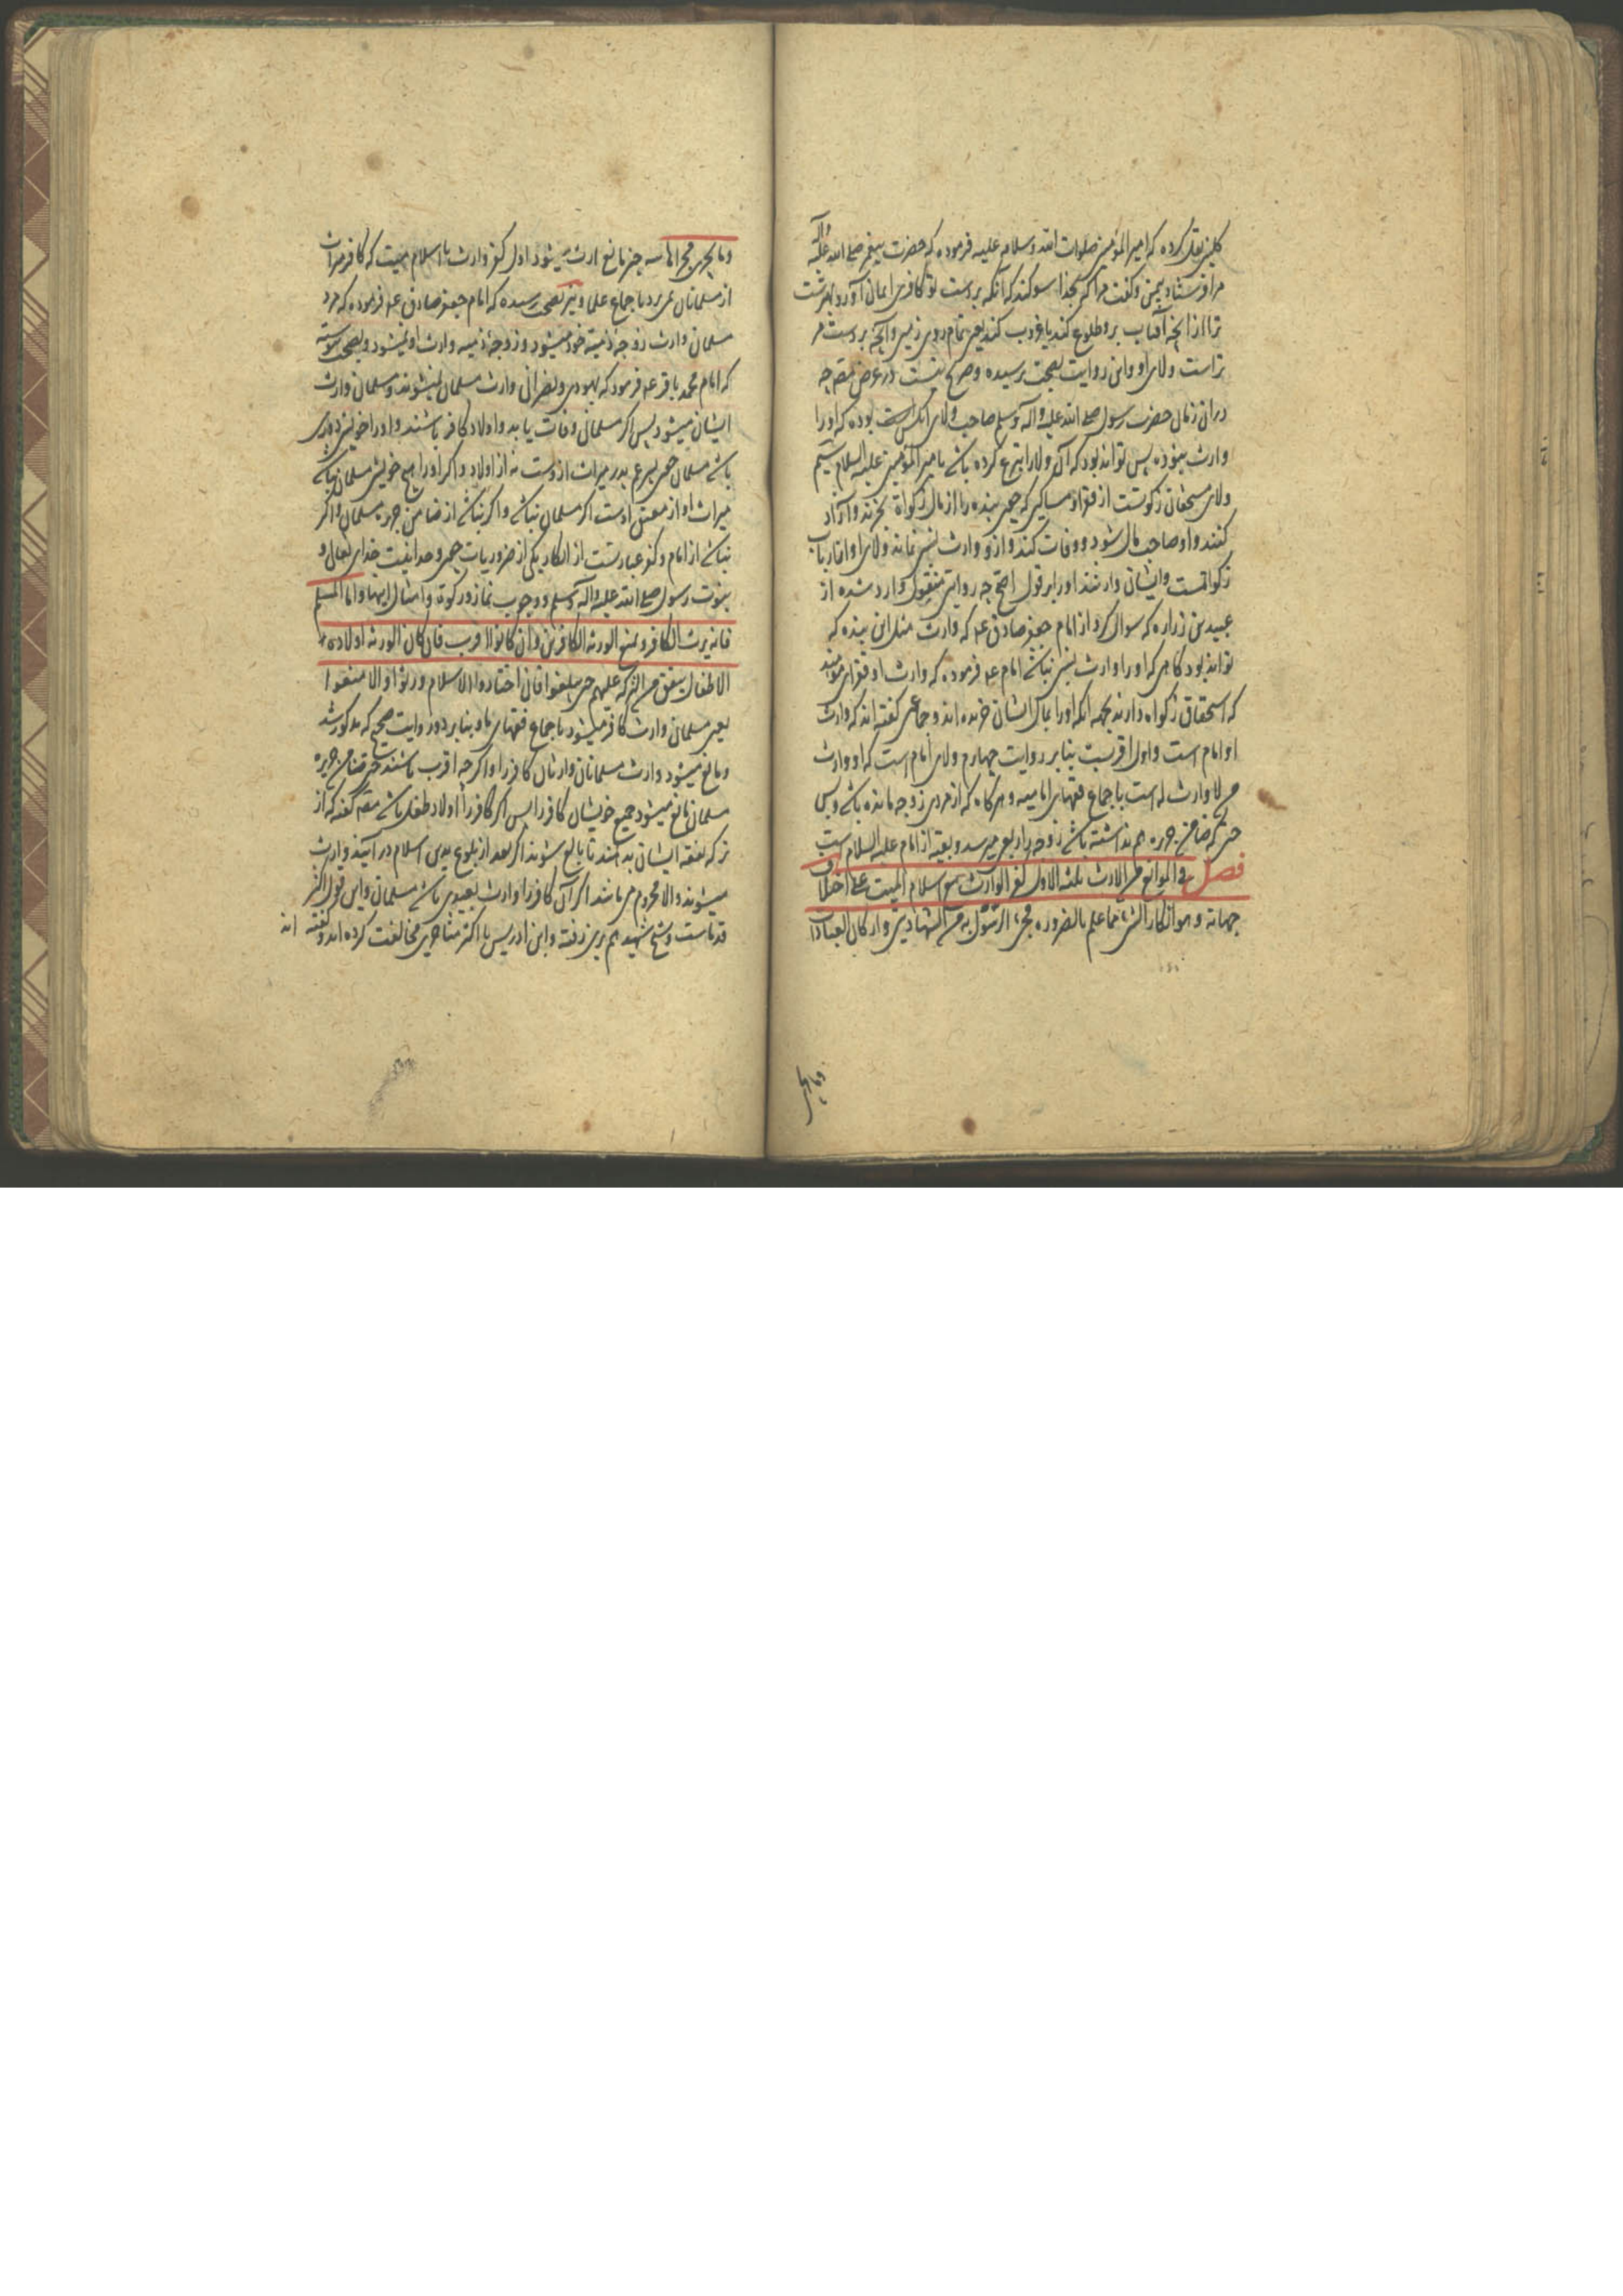 کلینی نقل کرده که امیر المؤمنین صلوات الله وسلامه علیه فرموده که حضرت پیغمبر صلی الله علیه وآله
مرا فرستاد بیمن وگفت مرا که بخدا سوکند که آنکه بر دست تو کافری ایمان آورد بهترست
ترا از انچه آفتاب برو طلوع کند یا غروب کند یعنی تمام روی زمین وآنچه بر دست مر
تراست ولای او واین روایت بصحت نرسیده وصریح نیست در غرض مقصر چه
دران زمان حضرت رسول صلی الله علیه وآله وسلم صاحب ولای آنکس است بوده که او را
وارث نبوده پس تواند بود که آن ولا را تبرع کرده باشد بامیر المؤمنین علیه السلام سیم
ولای مستحقان زکوتست از فقرا ومساکین که چون بنده را از مال زکوة بخرند وآزاد
کنند واو صاحب مال شود ووفات کند وازو وارث نسبی نماند ولای او از ارباب
زکواتست وایشان وارثند او را بر قول اصح چه روایتی منقول وارد شده از
عبید بن زراره که سوال کرد از امام جعفر صادق ع که وارث مثل این بنده که
تواند بود کاهی که او را وارث نسبی نباشد امام ع فرموده که وارث او فقرای مؤمنند
که استحقاق زکواه دارند بجهة انکه او را بمال ایشان خریده اند وجماعتی کفته اند که وارث
او امام است واول اقربست بنابر روایت چهارم ولای امام است که او وارث
من لا وارث له است باجماع فقهای امامیه وهرکاه که از مردی زوجه مانده باشد وبس
حتی که ضامن جریره هم نداشته باشد زوجه را ربع میرسد وبقیه از امام علیه السلام است
فصل فی الموانع من الارث ثلثه الاول کفر الوارث مع اسلام المیت علی اختلاف
جهاته وهو انکار الشیء مما علم بالضروره مجیء الرسول به من الشهادتین وارکان العبادات
وما یجری
وما یجری مجراها سه چیز مانع ارث میشود اول کفر وارث با اسلام میت که کافر میراث
از مسلمانان نمیبرد باجماع علما ونیز بصحت رسیده که امام جعفر صادق ع فرموده که مرد
مسلمان وارث زوجه ذمیه خود میشود وزوجه ذمیه وارث او نمیشود وبصحت پیوسته
که امام محمد باقر ع فرمود که یهودی ونصرانی وارث مسلمان نمیشوند ومسلمان وارث
ایشان میشود پس اکر مسلمانی وفات یابد واولاد کافر باشند واو را خویش دوری
باشد مسلمان چون پسر عم پدر میراث ازوست نه از اولاد واکر او را هیچ خویش مسلمان نباشد
میراث او از معتق اوست اکر مسلمان باشد واکر نباشد از ضامن جریره مسلمان واکر
نباشد از امام وکفر عبارتست از انکار یکی از ضروریات چون وحدانیت خدای تعالی و
نبوت رسول صلی الله علیه وآله وسلم ووجوب نماز وزکوة وامثال اینها واما المسلم
فانه یرث الکافر ویمنع الورثه الکافرین وان کانوا اقرب فان کان الورثه اولاده
الاطفال ینفق من الترکه علیهم حتی یبلغوا فان اختاروا الاسلام ورثوا والا منعوا
یعنی مسلمان وارث کافر میشود باجماع فقهای ما وبنابر دو روایت صحیح که مذکور شد
ومانع میشود وارث مسلمانان وارثان کافر را واکرچه اقرب باشند حتی ضامن جریره
مسلمان مانع میشود جمیع خویشان کافر را پس اکر کافر را اولاد طفل باشد مقصر کفته که از
ترکه نفقه ایشان بدهند تا بالغ شوند اکر بعد از بلوغ بدین اسلام درآیند وارث
میشوند والا محروم می باشد اکر آن کافر را وارث بعیدی باشد مسلمان واین قول اکثر
قدماست وشیخ شهید هم برین رفته وابن ادریس با اکثر متاخرین مخالفت کرده اند وکفته اند